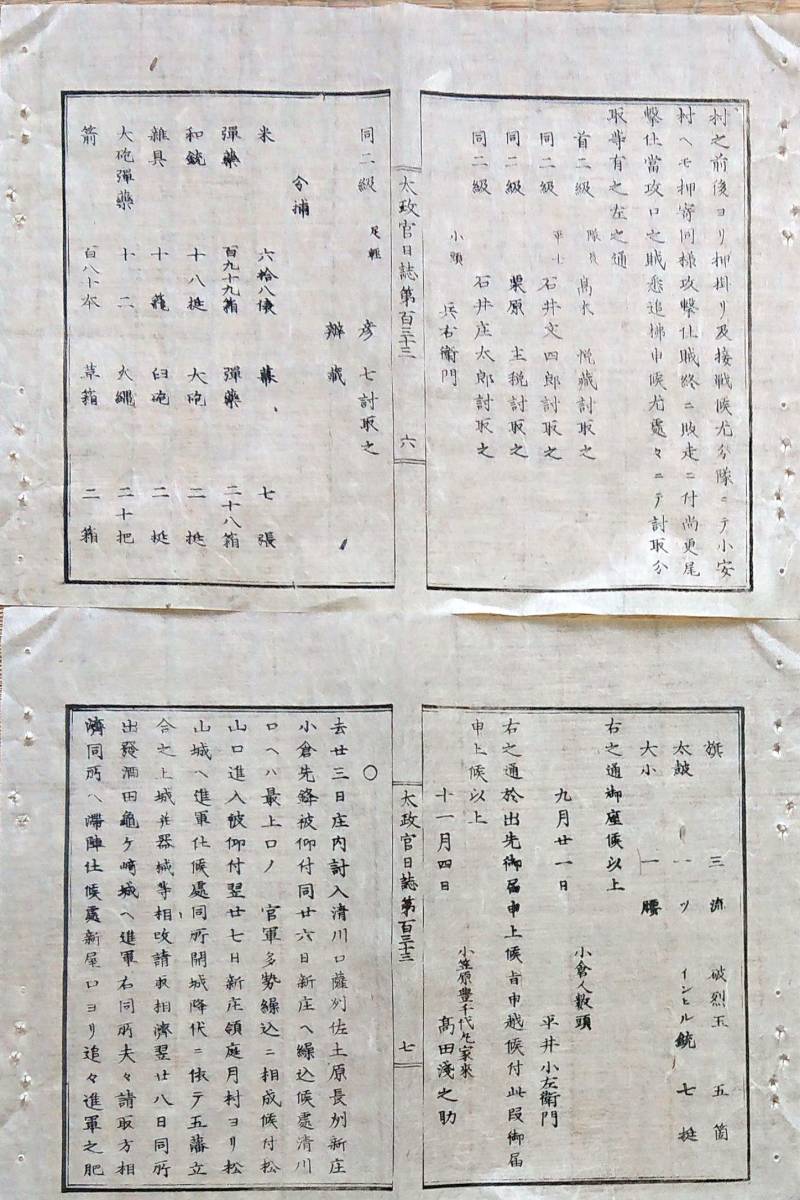 村之前後ヨリ押掛リ及接戦候尤分隊ニテ小安
村ヘモ押寄同様攻撃仕賊終ニ敗走ニ付尚更尾
撃仕当攻口之賊悉追拂申候尤處々ニテ討取分
取等有之左之通
首二級 隊長 高木 悦藏討取之
同二級 平士 石井文四郎討取之
同二級 栗原 主税討取之
同二級 石井庄太郎討取之
小頭 兵右衛門
太政官日誌第百三十三 六
同二級 足軽 彦七討取之
辦藏
分捕
米 六拾八俵 幕 七張
彈藥 百九十九箱 彈藥 二十八箱
和銃 十八挺 大砲 二挺
雜具 十籠 臼砲 二挺
大砲彈藥 十二 火繩 二十把
箭 百八十本 草箱 二箱
旗 三流 破烈玉 五箇
太鼓 一ツ インヒル銃 七挺
大小 一腰
右之通御座候以上
九月廿一日 小倉人數頭
平井小左衛門
右之通於出先御届申上候旨申越候付此段御届
申上候以上
十一月四日 小笠原豊千代丸家来
髙田淺之助
太政官日誌第百三十三 七
〇
去廿三日庄内討入清川口薩州佐土原長州新庄
小倉先鋒被仰付同廿六日新庄ヘ繰込候處清川
口ヘハ最上口ノ 官軍多勢繰込ニ相成候付松
山口進入被仰付翌廿七日新庄領庭月村ヨリ松
山城ヘ進軍仕候處同所開城降伏ニ依テ五藩立
合之上城并器械等相改請取相濟翌廿八日同所
出發酒田龜ケ崎城ヘ進軍右同所夫々請取方相
濟同所ヘ滯陣仕候處新屋口ヨリ追々進軍之肥